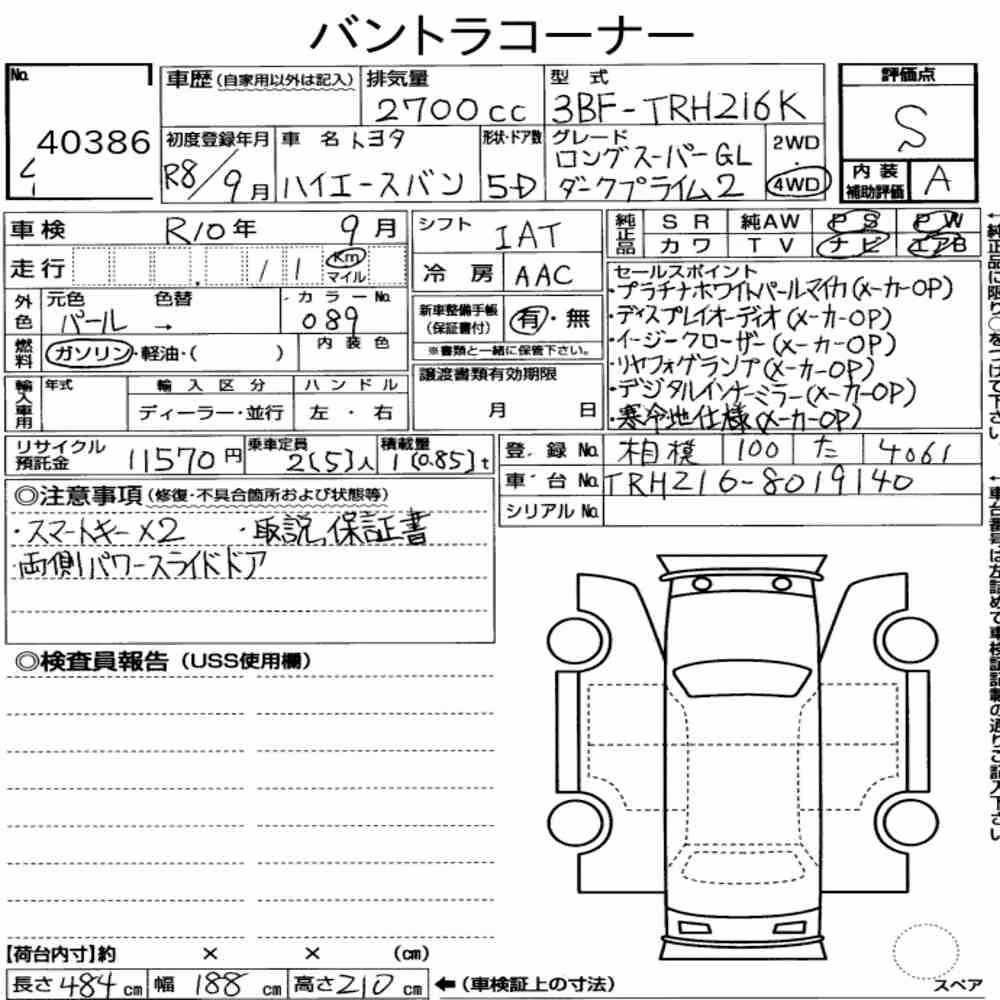 バントラコーナー
No.
40386
車歴 (自家用以外は記入)
排気量
2700cc
型式
3BF-TRH216K
評価点
S
初度登録年月
R8/9月
車名 トヨタ
ハイエースバン
形状・ドア数
5-D
グレード
ロングスーパーGL
ダークプライム2
2WD
・
4WD
内装
補助評価
A
車検 R10年 9月
シフト IAT
純正品
SR 純AW PS PW
カワ TV ナビ エアB
走行 11 Km
マイル
冷房 AAC
外色
元色 色替 カラーNo.
パール → 089
燃料
ガソリン・軽油・( )
内装色
新車整備手帳
(保証書付)
有・無
※書類と一緒に保管下さい。
セールスポイント
・プラチナホワイトパールマイカ(メーカーOP)
・ディスプレイオーディオ(メーカーOP)
・イージークローザー(メーカーOP)
・リヤフォグランプ(メーカーOP)
・デジタルインナーミラー(メーカーOP)
・寒冷地仕様(メーカーOP)
輸入車用
年式 輸入区分 ハンドル
ディーラー・並行 左・右
譲渡書類有効期限
月 日
リサイクル
預託金
11570円
乗車定員
2(5)人
積載量
1(0.85)t
登録No. 相模 100 た 4061
車台No. TRH216-8019140
シリアルNo.
◎注意事項 (修復・不具合箇所および状態等)
・スマートキーX2 ・取説, 保証書
・両側パワースライドドア
◎検査員報告 (USS使用欄)
【荷台内寸】約 × × (cm)
長さ484cm 幅188cm 高さ210cm ←(車検証上の寸法)
スペア
←純正品に限り○をつけて下さい。